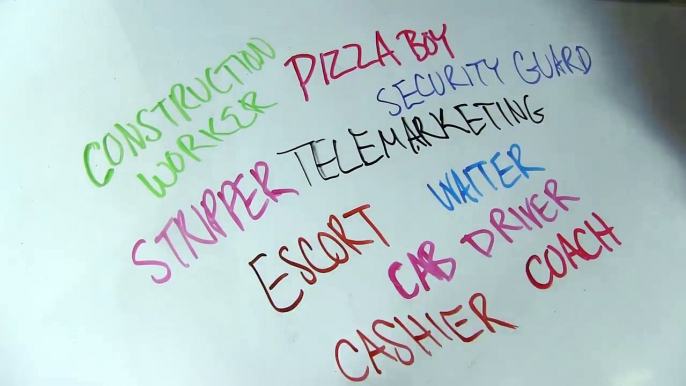 CONSTRUCTION
WORKER
PIZZA BOY
SECURITY GUARD
TELEMARKETING
STRIPPER
WAITER
ESCORT
CAB DRIVER
COACH
CASHIER